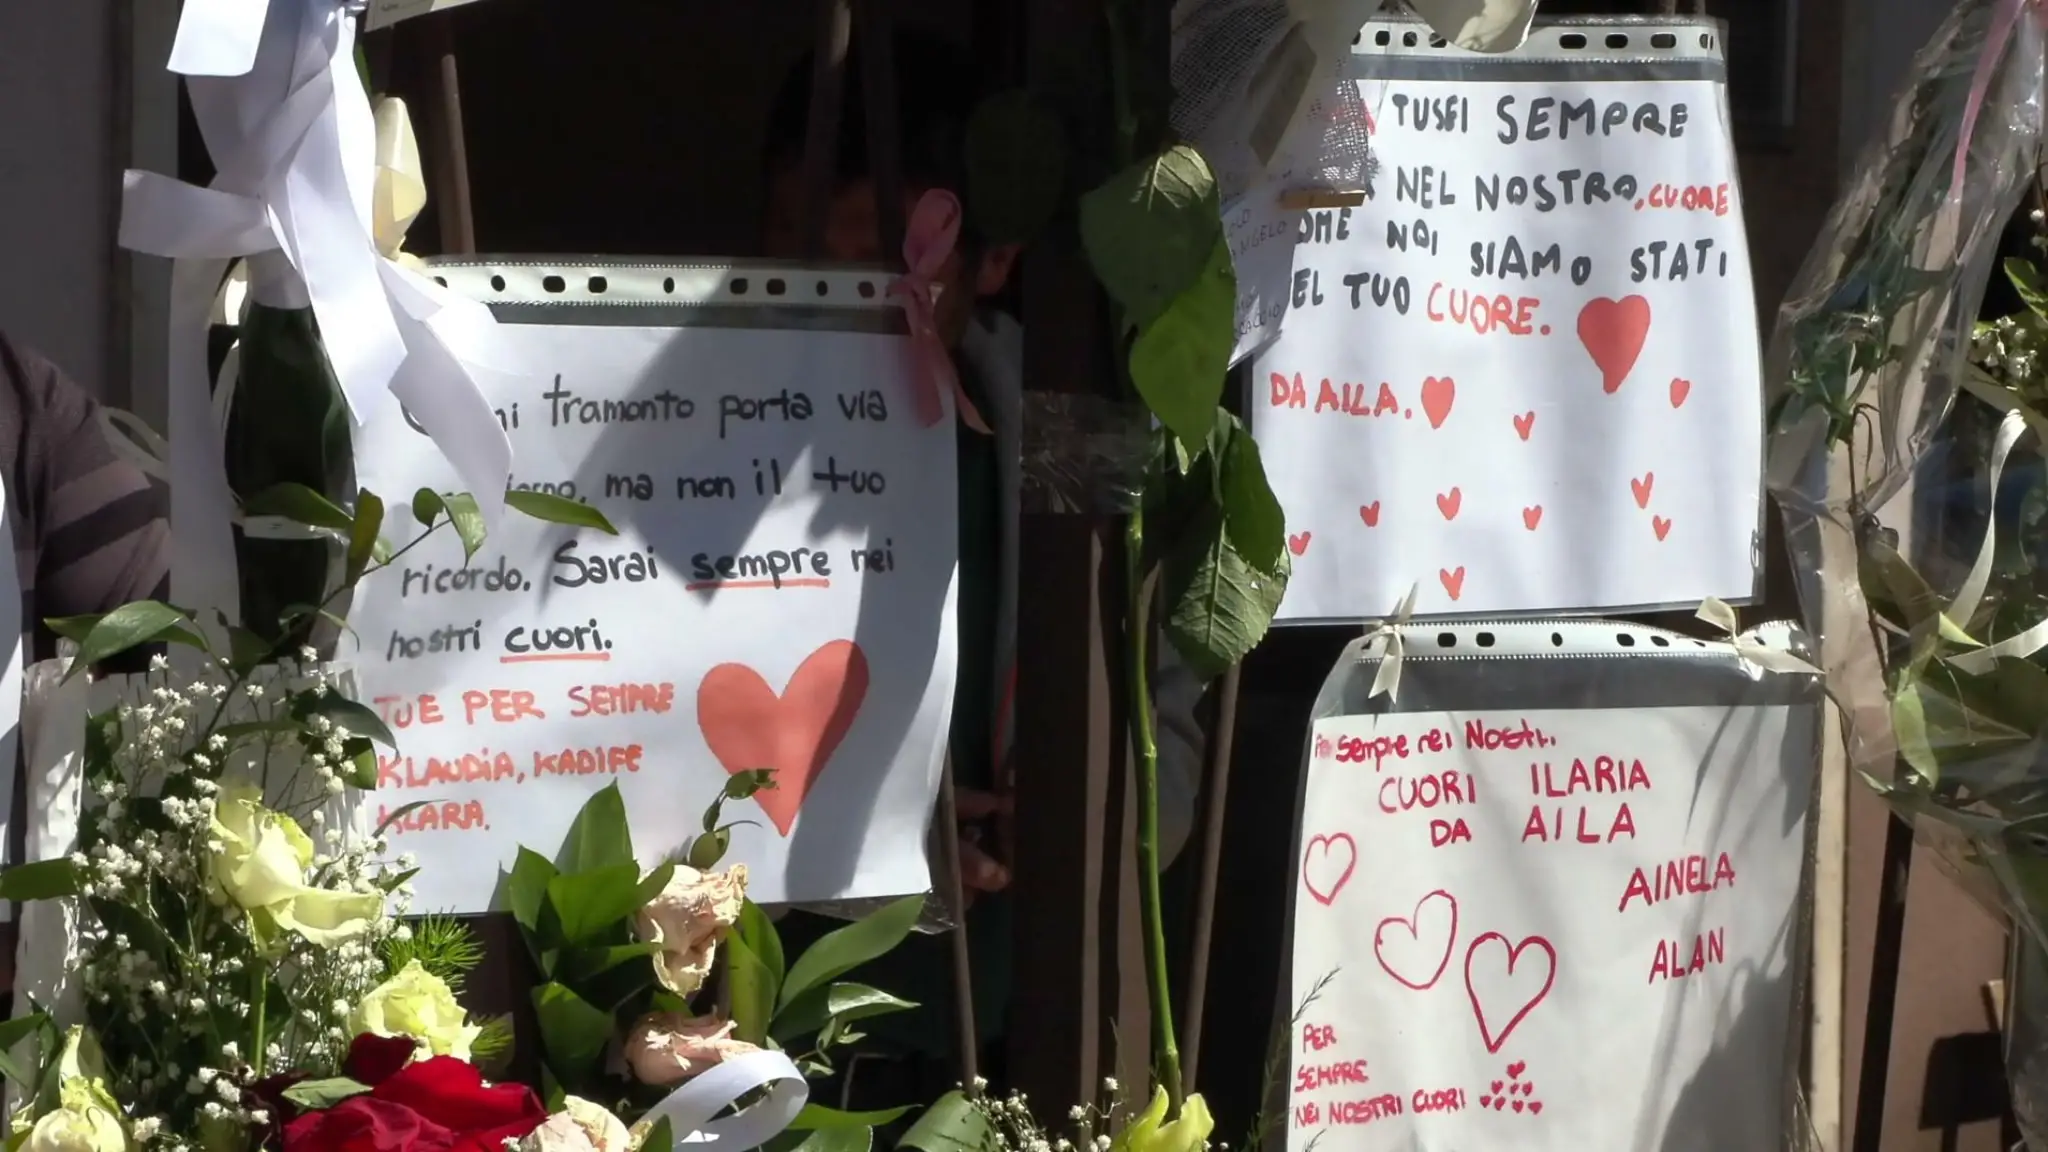 tramonto porta via
ma non il tuo
ricordo. Sarai sempre nei
nostri cuori.
TUE PER SEMPRE
KLAUDIA, KADIFE
KLARA.
TUSEI SEMPRE
NEL NOSTRO, CUORE
NOI SIAMO STATI
TUO CUORE.
DA AILA.
Sempre nei Nostri.
CUORI ILARIA
DA AILA
AINELA
ALAN
PER
SEMPRE
NEI NOSTRI CUORI